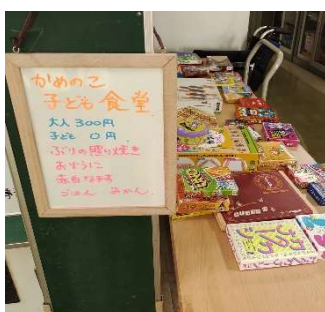 かめのこ
子ども食堂
大人 300円
子ども 0円
ぶりの照り焼き
おぞうに
赤白なます
ごはん みかん